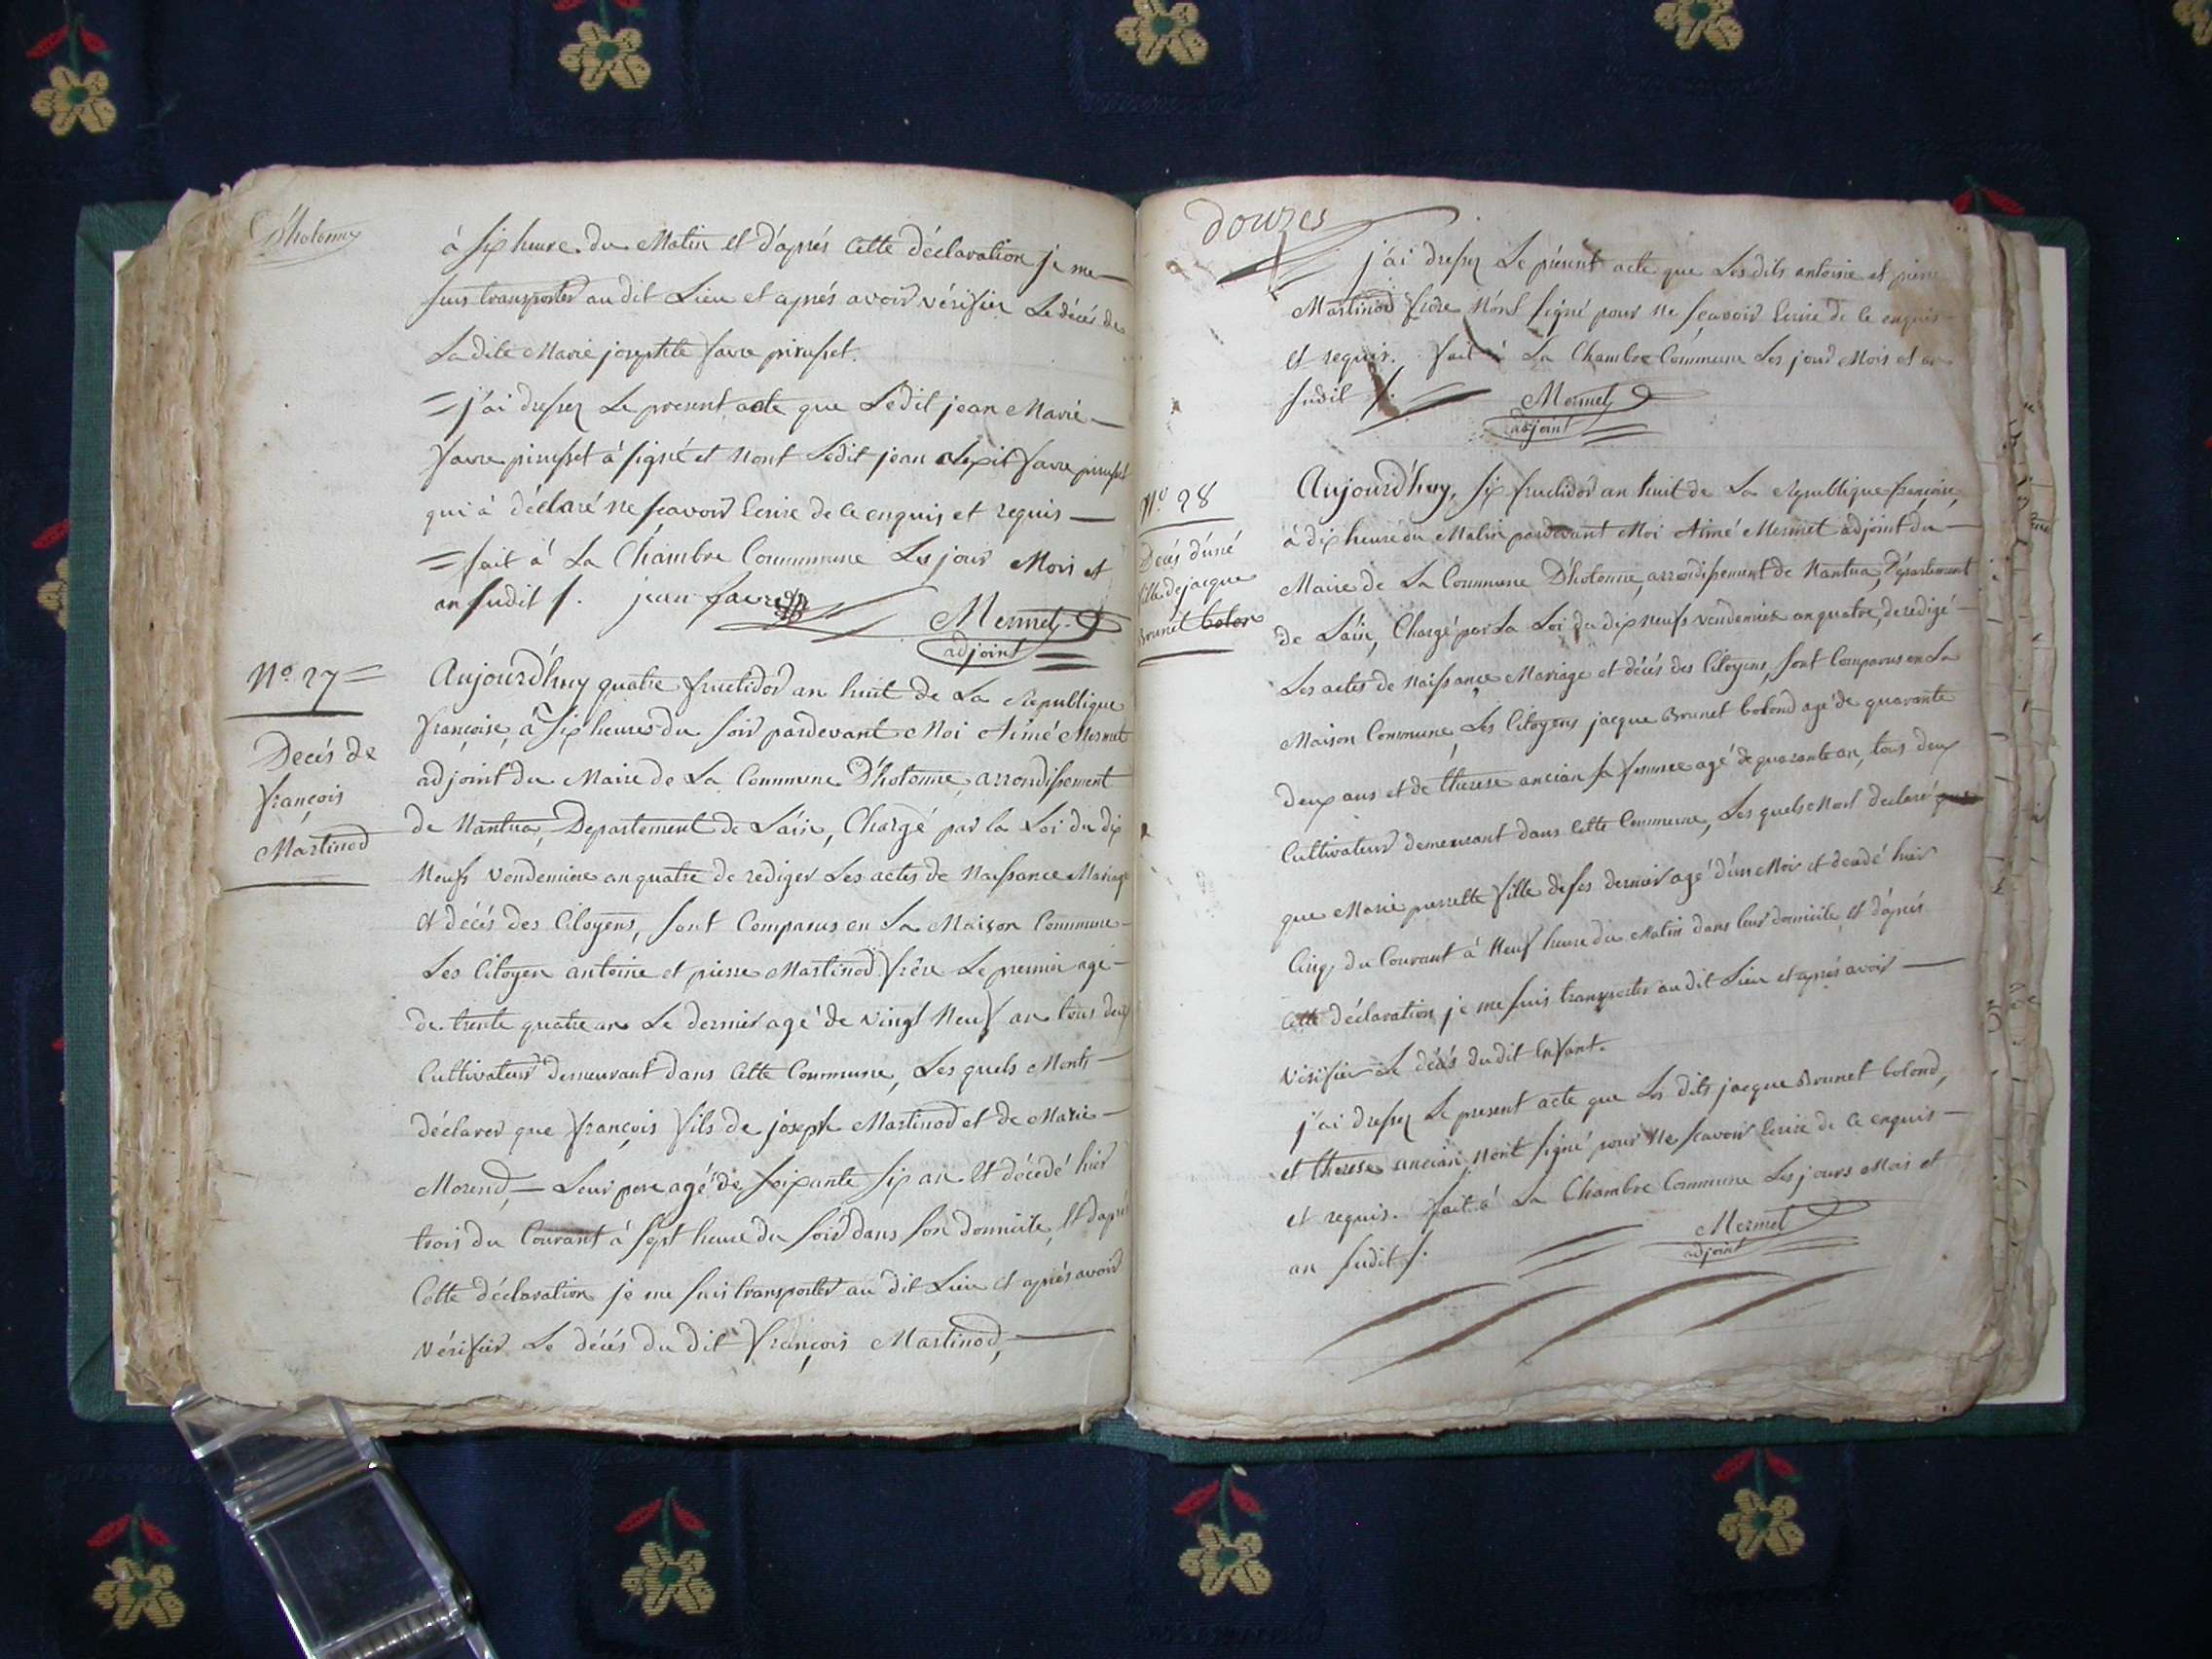 D'hotonne
à six heure du Matin et d'aprés Cette déclaration je me
suis transporter au dit Lieu et aprés avoir vérifier Le décés de
La dite Marie josephte favre pirusset.
= j'ai dressez Le present acte que Ledit jean Marie
favre pirusset à signé et Nont Ledit jean Alexit favre pirusset
qui à déclaré ne sçavoir Ecrire de Ce enquis et requis
= fait à La Chambre Commmune Les jour Mois et
an sudit /. jean favre
Mermet
adjoint
No. 27
Decés de
françois
Martinod
Aujourd'huy quatre fructidor an huit de La Republique
françoise, à six heures du soir pardevant Moi Aimé Mermet
adjoint du Maire de La Commune D'hotonne, arrondissement
de Nantua, Departement de L'ain, Chargé par la Loi du dix
Neufs Vendemiere an quatre de rediger Les actes de Naissance Mariage
et décés des Citoyens, sont Comparus en La Maison Commune
Les Citoyen antoine et pierre Martinod frêre Le premier agé
de trente quatre an Le dernier agé de vingt Neuf an tous deux
Cultivateur demeurant dans Cette Commune, Les quels Monts
déclarer que françois fils de joseph Martinod et de Marie
Morend, Leur pere agé de soixante six an Et décedé hier
trois du Courant à sept heure du soir dans son domicile, Et daprés
Cette déclaration je me suis transporter au dit Lieu et aprés avoir
Vérifier Le décés du dit françois Martinod,
douzes
j'ai dressez Le présent acte que Les dits antoine et pierre
Martinod frere N'ont signé pour Ne sçavoir Ecrire de Ce enquis
et requis. fait à La Chambre Commune Les jour Mois et an
sudit /.
Mermet
adjoint
No. 28
Décés d'uné
fille de jacque
Brunet bolon
Aujourd'huy, six fructidor an huit de La Republique françoise,
à dix heure du Matin pardevant Moi Aimé Mermet adjoint du
Maire de La Commune D'hotonne, arrondissement de Nantua, Département
de L'ain, Chargé par La Loi du dix neufs vendemiere an quatre, de redigé
Les actes de Naissance Mariage et décés des Citoyens, sont Comparus en La
Maison Commune, Les Citoyens jacque Brunet bolond agé de quarante
deux ans et de therese ancian sa femme agé de quarante an, tous deux
Cultivateur demeurant dans Cette Commune, Les quels Mont declaré
que Marie pierrette fille de ses dernier agé d'un Mois et décedé hier
Cinq du Courant à Neuf heure du Matin dans leur domicile, Et d'aprés
Cette déclaration je me suis transporter au dit Lieu et aprés avoir
Vérifier Le décés du dit Enfant.
j'ai dressez Le present acte que Les dits jacque Brunet bolond,
et therese ancian N'ont signé pour Ne sçavoir Ecrire de Ce enquis
et requis. fait à La Chambre Commune Les jours Mois et
an sudit /.
Mermet
adjoint